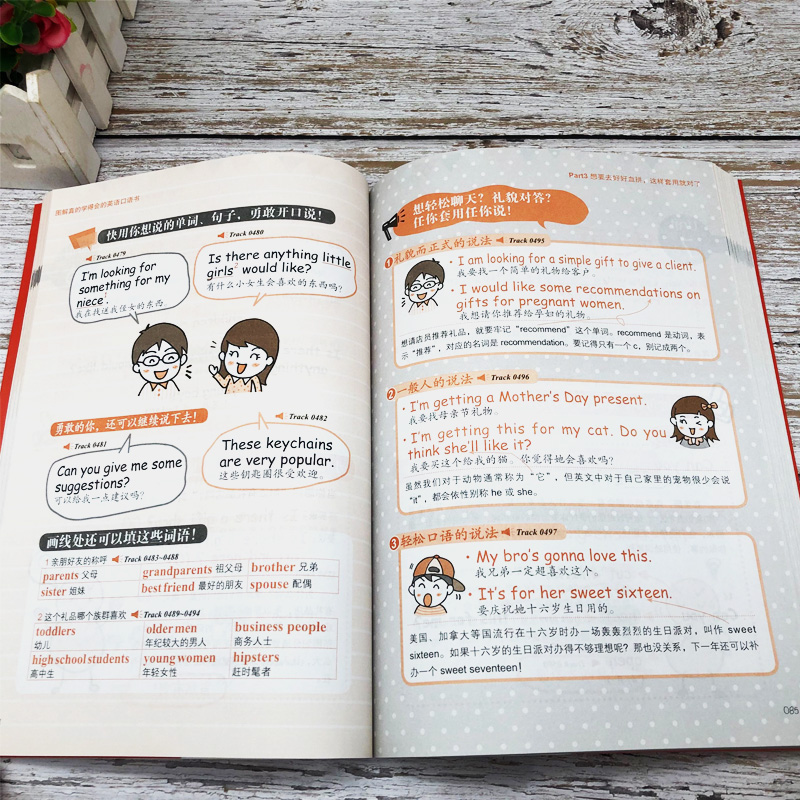 图解真的学得会的英语口语书
快用你想说的单词、句子，勇敢开口说！
Track 0479
I'm looking for
something for my
niece1.
我在找送我侄女的东西。
Track 0480
Is there anything little
girls2 would like?
有什么小女生会喜欢的东西吗？
勇敢的你，还可以继续说下去！
Track 0481
Can you give me some
suggestions?
可以给我一点建议吗？
Track 0482
These keychains
are very popular.
这些钥匙圈很受欢迎。
画线处还可以填这些词语！
1 亲朋好友的称呼 Track 0483~0488
parents 父母 grandparents 祖父母 brother 兄弟
sister 姐妹 best friend 最好的朋友 spouse 配偶
2 这个礼品哪个族群喜欢 Track 0489~0494
toddlers older men business people
幼儿 年纪较大的男人 商务人士
high school students young women hipsters
高中生 年轻女性 赶时髦者
Part3 想要去好好血拼，这样套用就对了
想轻松聊天？礼貌对答？
任你套用任你说！
1 礼貌而正式的说法 Track 0495
• I am looking for a simple gift to give a client.
我要找一个简单的礼物给客户。
• I would like some recommendations on
gifts for pregnant women.
我想请你推荐给孕妇的礼物。
想请店员推荐礼品，就要牢记“recommend”这个单词。recommend 是动词，表
示“推荐”，对应的名词是 recommendation。要记得只有一个 c，别记成两个。
2 一般人的说法 Track 0496
• I'm getting a Mother's Day present.
我要找母亲节礼物。
• I'm getting this for my cat. Do you
think she'll like it?
我要买这个给我的猫。你觉得她会喜欢吗？
虽然我们对于动物通常称为“它”，但英文中对于自己家里的宠物很少会说
“it”，都会依性别称 he 或 she。
3 轻松口语的说法 Track 0497
• My bro's gonna love this.
我兄弟一定超喜欢这个。
• It's for her sweet sixteen.
要庆祝她十六岁生日用的。
美国、加拿大等国流行在十六岁时办一场轰轰烈烈的生日派对，叫作 sweet
sixteen。如果十六岁的生日派对办得不够理想呢？那也没关系，下一年还可以补
办一个 sweet seventeen！
085